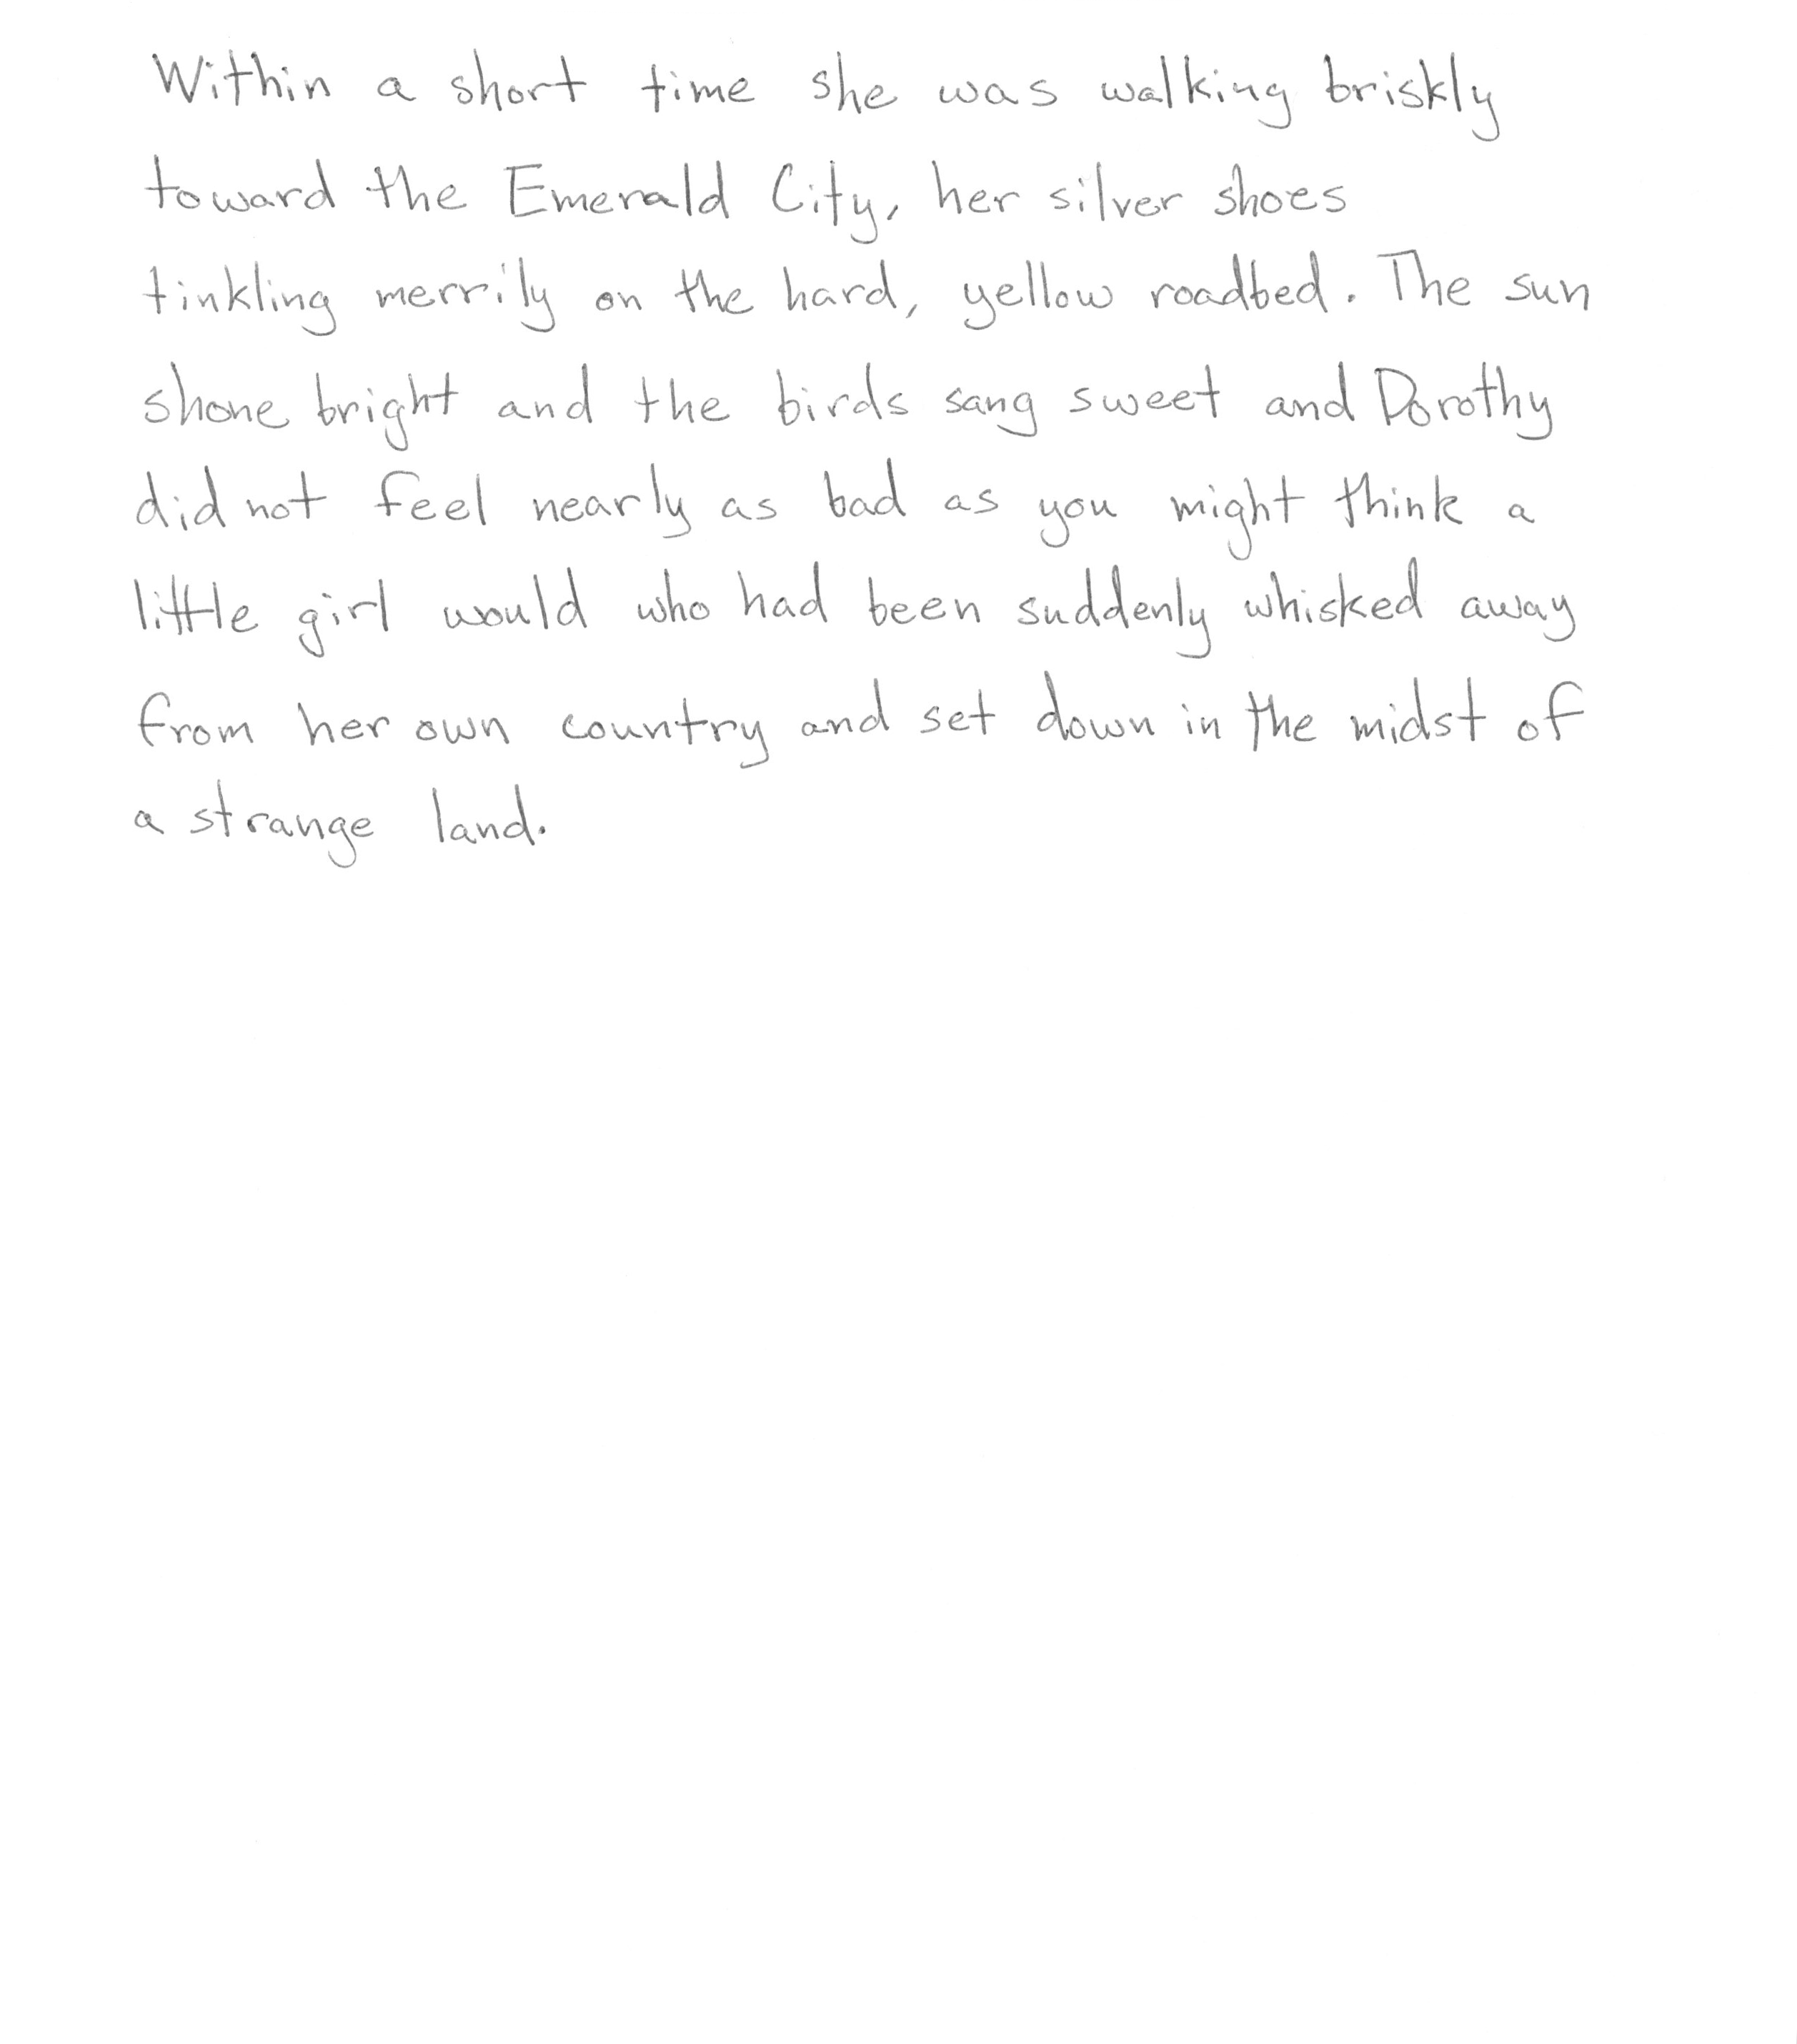 Within a short time she was walking briskly
toward the Emerald City, her silver shoes
tinkling merrily on the hard, yellow roadbed. The sun
shone bright and the birds sang sweet and Dorothy
did not feel nearly as bad as you might think a
little girl would who had been suddenly whisked away
from her own country and set down in the midst of
a strange land.